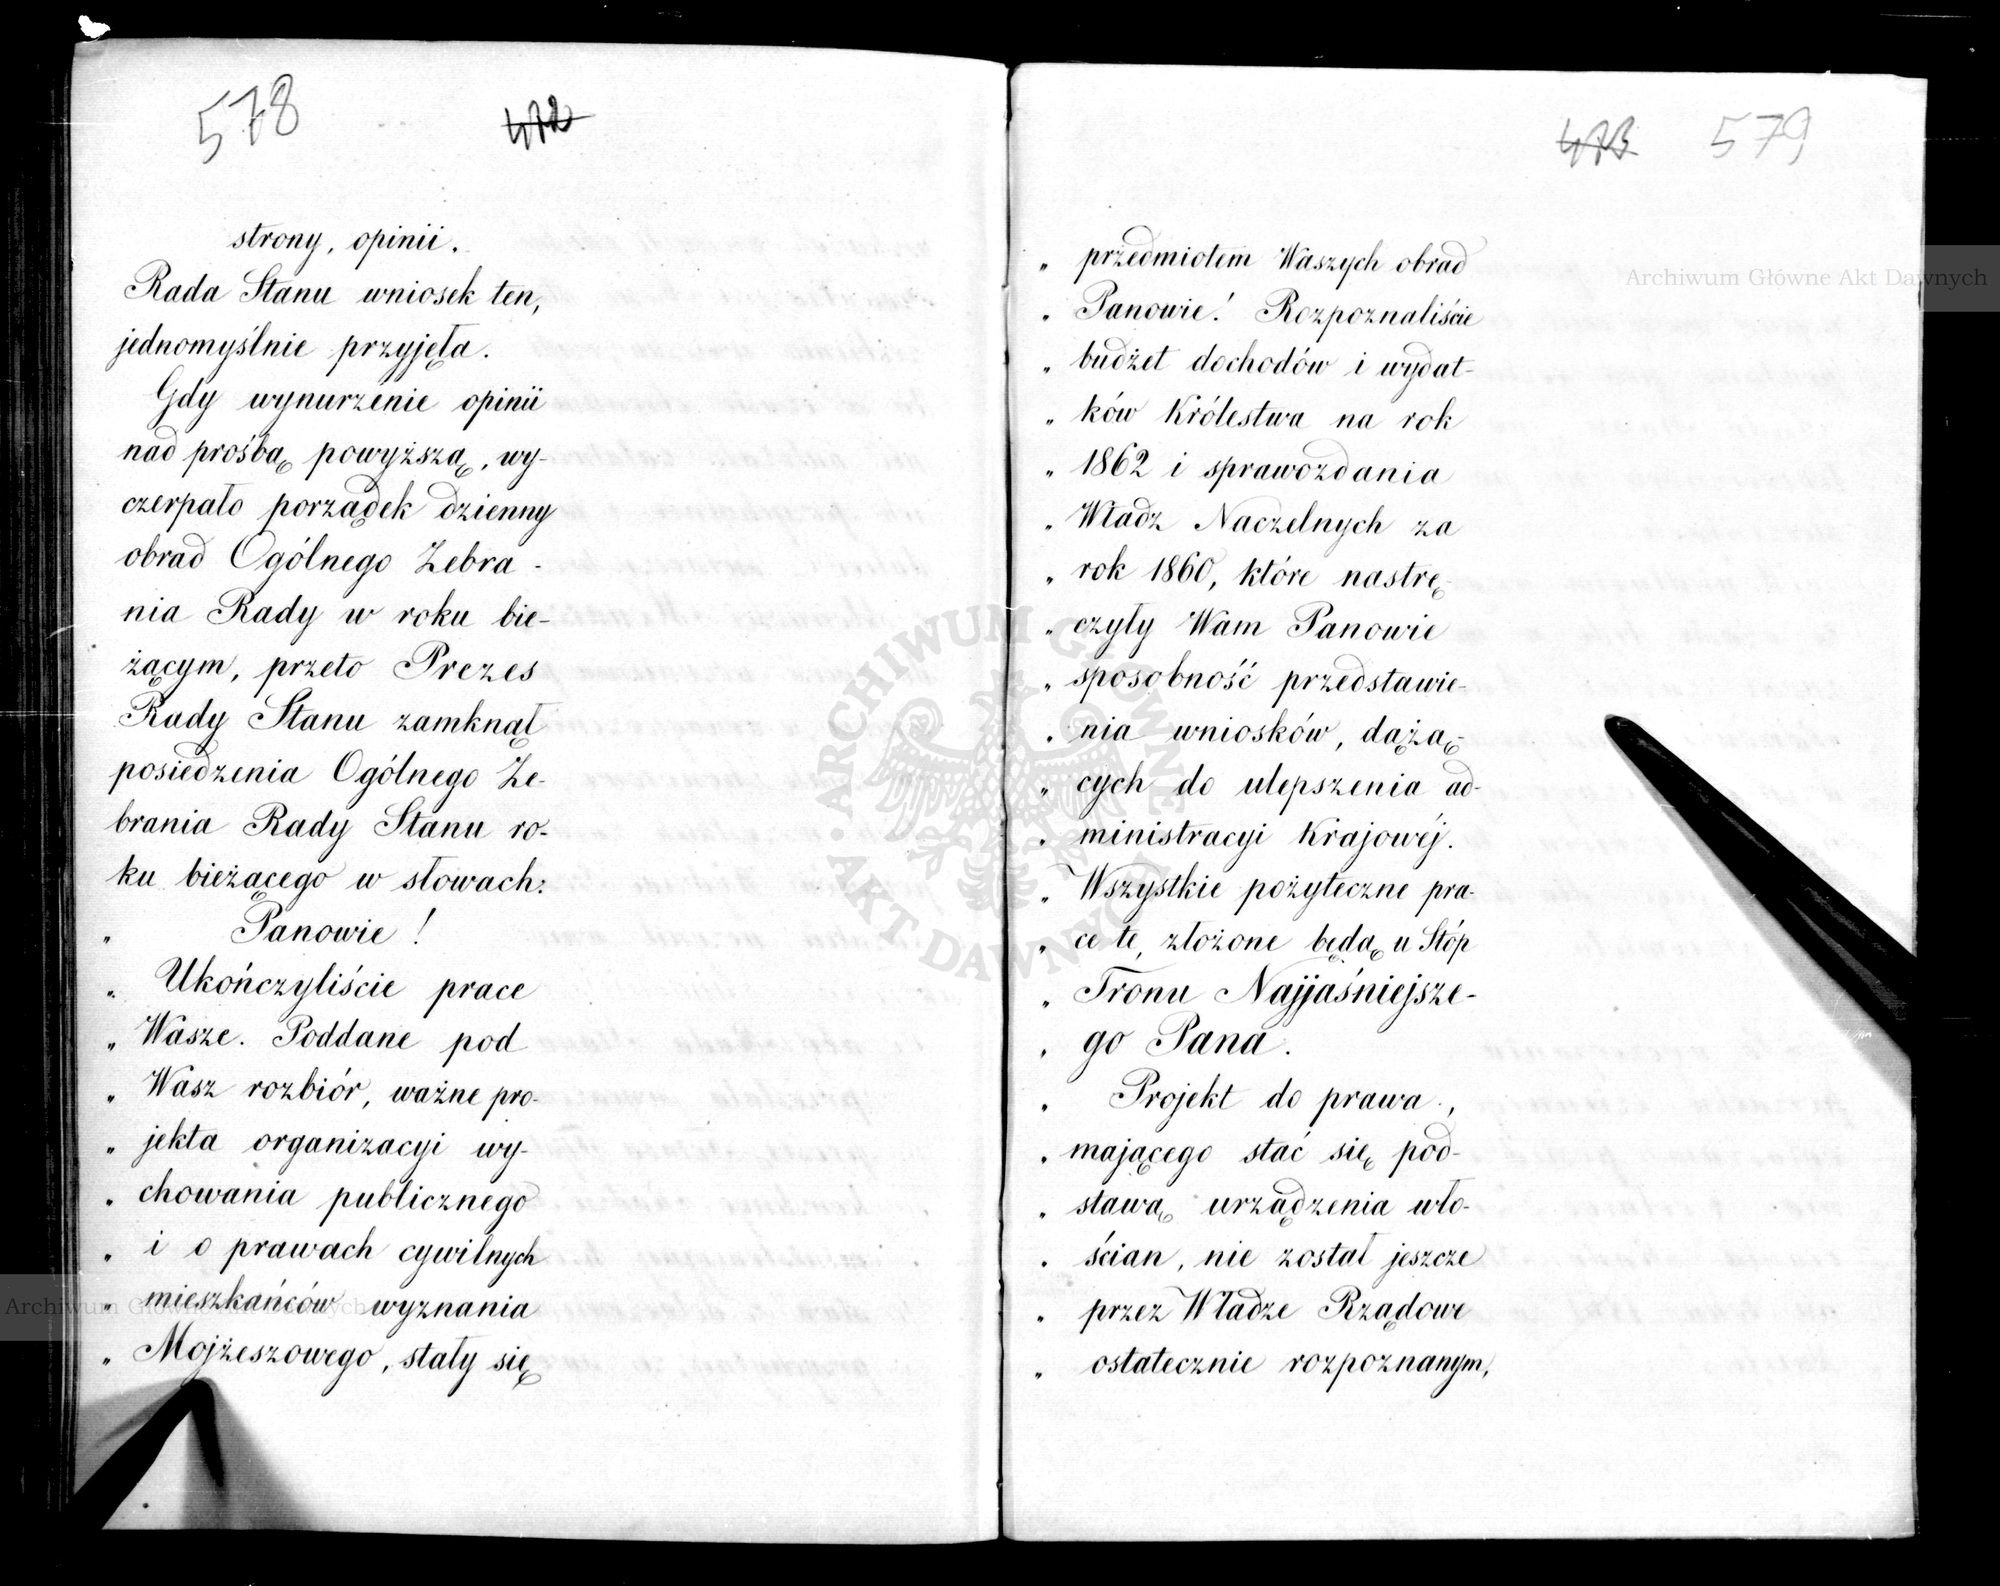 578 472
strony, opinii.
Rada Stanu wniosek ten,
jednomyślnie przyjęła.
Gdy wynurzenie opinii
nad prośbą powyższą, wy-
czerpało porządek dzienny
obrad Ogólnego Zebra-
nia Rady w roku bie-
żącym, przeto Prezes
Rady Stanu zamknął
posiedzenia Ogólnego Ze-
brania Rady Stanu ro-
ku bieżącego w słowach:
„ Panowie!
„ Ukończyliście prace
„ Wasze. Poddane pod
„ Wasz rozbiór, ważne pro-
„ jekta organizacyi wy-
„ chowania publicznego
„ i o prawach cywilnych
„ mieszkańców wyznania
„ Mojżeszowego, stały się
473 579
„ przedmiotem Waszych obrad
„ Panowie! Rozpoznaliście
„ budżet dochodów i wydat-
„ ków Królestwa na rok
„ 1862 i sprawozdania
„ Władz Naczelnych za
„ rok 1860, które nastrę-
„ czyły Wam Panowie
„ sposobność przedstawie-
„ nia wniosków, dążą-
„ cych do ulepszenia ad-
„ ministracyi Krajowéj.
„ Wszystkie pożyteczne pra-
„ ce te, złożone będą u Stóp
„ Tronu Najjaśniejsze-
„ go Pana.
„ Projekt do prawa,
„ mającego stać się pod-
„ stawą urządzenia wło-
„ ścian, nie został jeszcze
„ przez Władze Rządowe
„ ostatecznie rozpoznanym,
Archiwum Główne Akt Dawnych
Archiwum Główne Akt Dawnych
ARCHIWUM GŁÓWNE AKT DAWNYCH